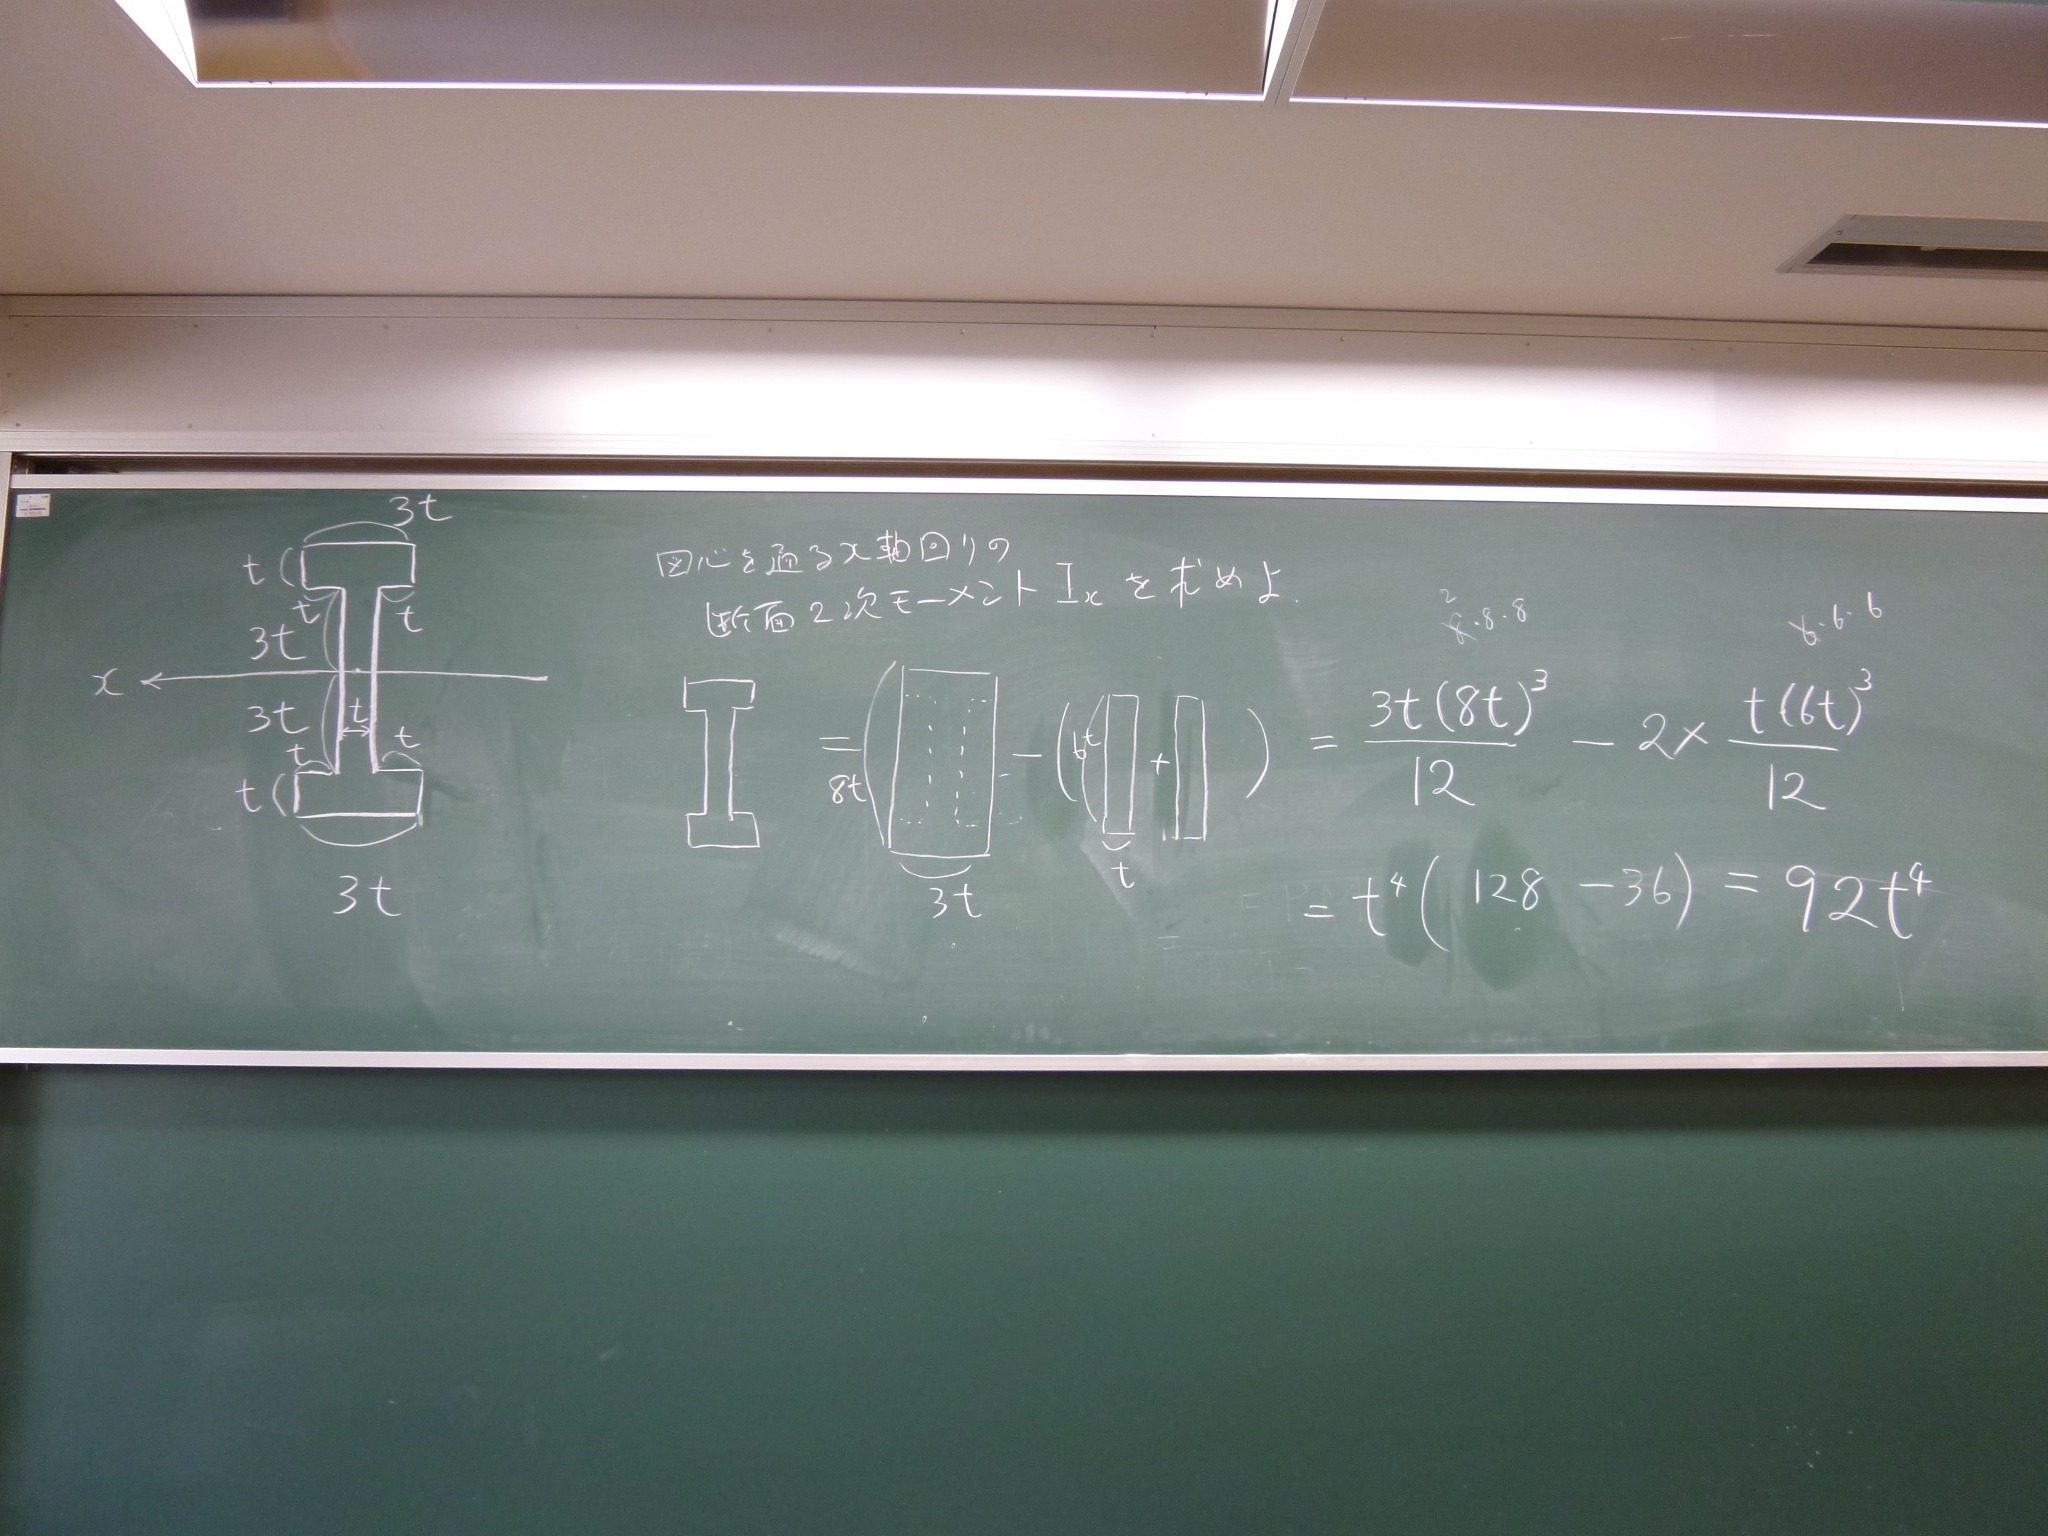 3t
t
t
t
3t
x
3t
t
t
t
t
3t
図心を通るx軸回りの
断面2次モーメントIxを求めよ.
= 8t 3t - ( 6t t + ) = 3t(8t)³/12 - 2× t(6t)³/12
2
8·8·8
6·6·6
= t⁴( 128 - 36) = 92t⁴